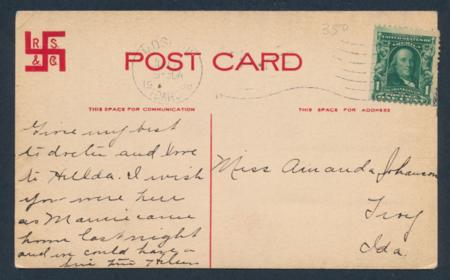 R. S.
& C.
POST CARD
350
THIS SPACE FOR COMMUNICATION
THIS SPACE FOR ADDRESS
Give my best
to doctor and love
to Hillda. I wish
you were here
as Mamie came
home last night
and we could have a
fine time Helen
Miss Amanda Johanson
Troy
Ida.